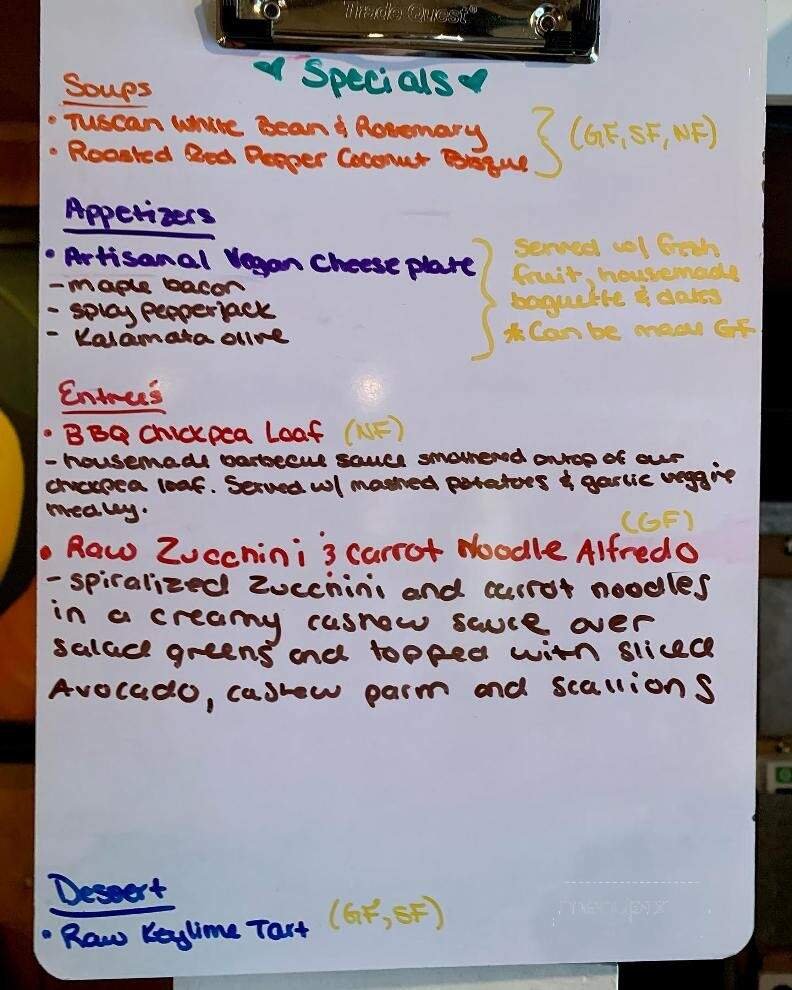 Trade Quest®
Specials
Soups
• Tuscan White Bean & Rosemary
• Roasted Red Pepper Coconut Bisque
(GF, SF, NF)
Appetizers
• Artisanal Vegan Cheese plate
- maple bacon
- spicy pepperjack
- Kalamata olive
Served w/ fresh
fruit, housemade
baguette & dates
* Can be made GF
Entreés
• BBQ Chickpea Loaf (NF)
- housemade barbecue sauce smothered ontop of our
chickpea loaf. Served w/ mashed potatoes & garlic veggie
medley.
(GF)
• Raw Zucchini & Carrot Noodle Alfredo
- spiralized zucchini and carrot noodles
in a creamy cashew sauce over
salad greens and topped with sliced
Avocado, cashew parm and scallions
Dessert
• Raw Keylime Tart (GF, SF)